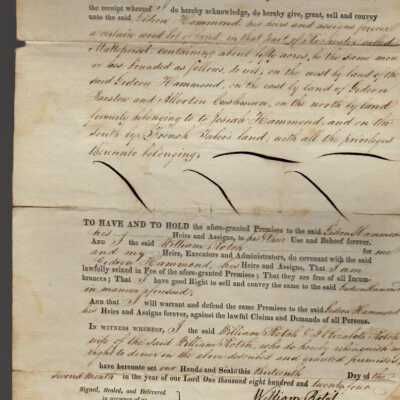 the receipt whereof I do hereby acknowledge, do hereby give, grant, sell and convey
unto the said Gideon Hammond, his heirs and assigns forever
a certain wood lot of land, in that part of Rochester called
Mattepoiset containing about fifty acres, be the same more
or less, bounded as follows, to wit, on the east by land of the
said Gideon Hammond, on the east by land of Gideon
Barstow and Allerton Cushman, on the north by land
formerly belonging to Josiah Hammond, and on the
south by French land, with all the privileges
thereunto belonging.
TO HAVE AND TO HOLD the afore-granted Premises to the said Gideon Hammond
his Heirs and Assigns, to his & their Use and Behoof forever.
AND I the said William Rotch for me
and my Heirs, Executors and Administrators, do covenant with the said
Gideon Hammond, his Heirs and Assigns, That I am
lawfully seized in Fee of the afore-granted Premises; That they are free of all Incum-
brances; That I have good Right to sell and convey the same to the said Gideon Hammond
in manner aforesaid.
And that I will warrant and defend the same Premises to the said Gideon Hammond
his Heirs and Assigns forever, against the lawful Claims and Demands of all Persons.
IN WITNESS whereof, I the said William Rotch & Elizabeth Rotch
wife of the said William Rotch, who do hereby relinquish her
right to dower in the above described and granted premises,
have hereunto set our Hands and Seals this thirteenth Day of the
second month in the year of our Lord One thousand eight hundred and twenty four
Signed, Sealed, and Delivered
William Rotch